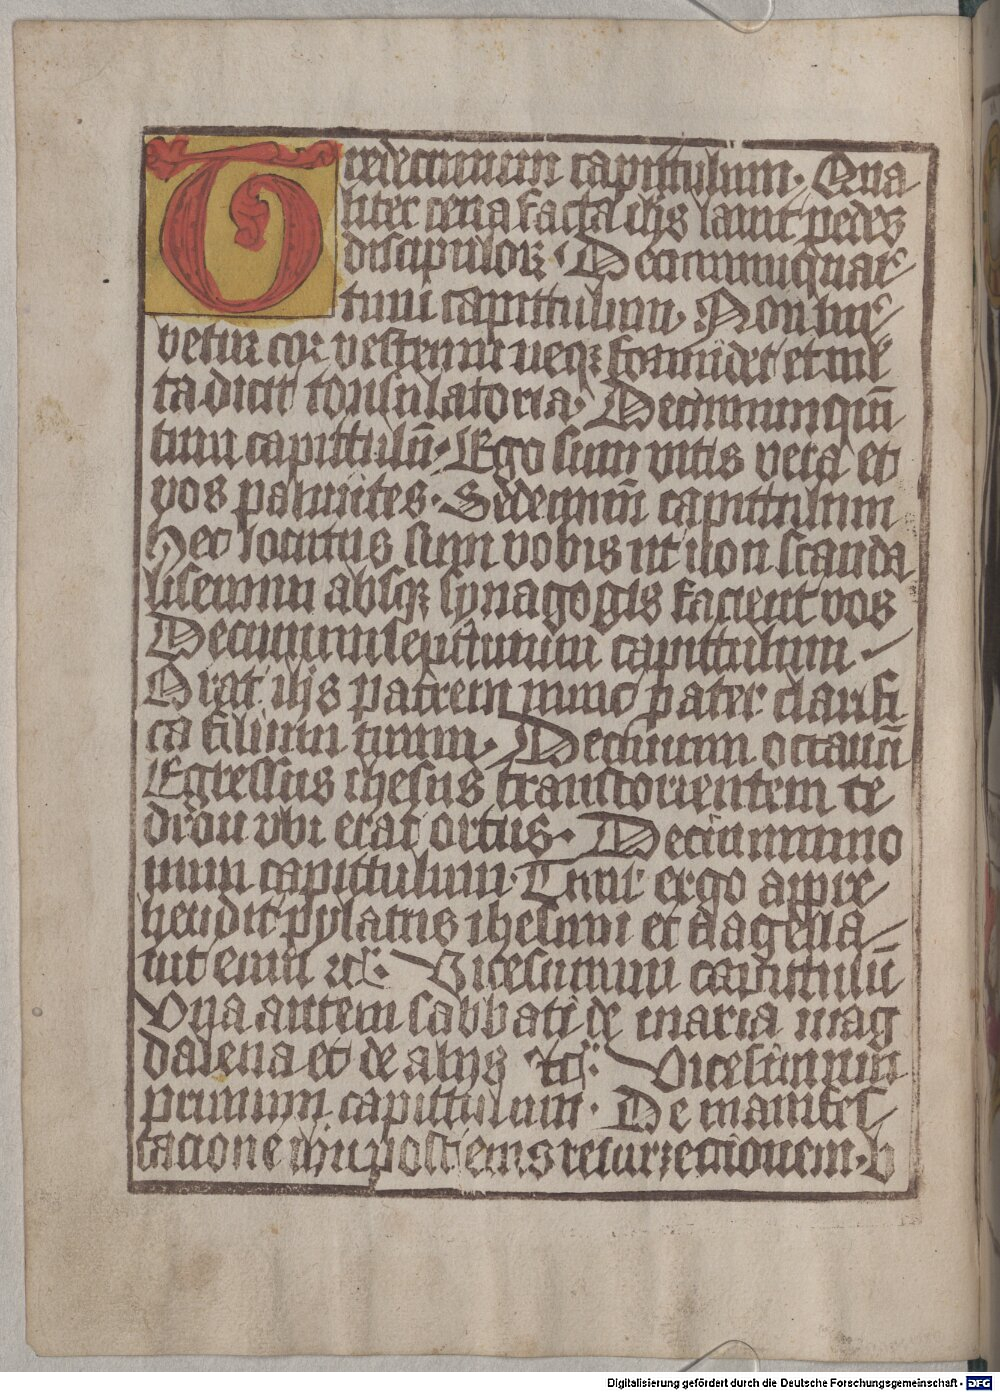 Tredecimum capittulum. Qua
liter cena facta ihs lauit pedes
discipuloꝝ. Decimumquar
tum capittulum. Non tur
betur cor vestrum neqꝫ formidet et ml
ta dicit consulatoria. Decimumquī
tum capittulū. Ego sum vitis vera et
vos palmites. Sedecimū capittulum
Hec locutus sum vobis ut non scanda
lisemini absqꝫ synagogis facient vos
Decimumseptimum capittulum.
Orat ihs patrem nunc pater clarifi
ca filium tuum. Decimum octauū
Egressus ihesus transtorrentem ce
dron vbi erat ortus. Decimumno
num capittulum. Tunc ergo appre
hendit pylatus ihesum et flagella
uit eum ꝛcꝭ. Vicesimum capittulū
Vna autem sabbati de maria mag
dalena et de alijs ꝛcꝭ. Vicesimum
primum capittulum. De manifes
tacione ihu post eius resurrectionem. b
Digitalisierung gefördert durch die Deutsche Forschungsgemeinschaft - DFG